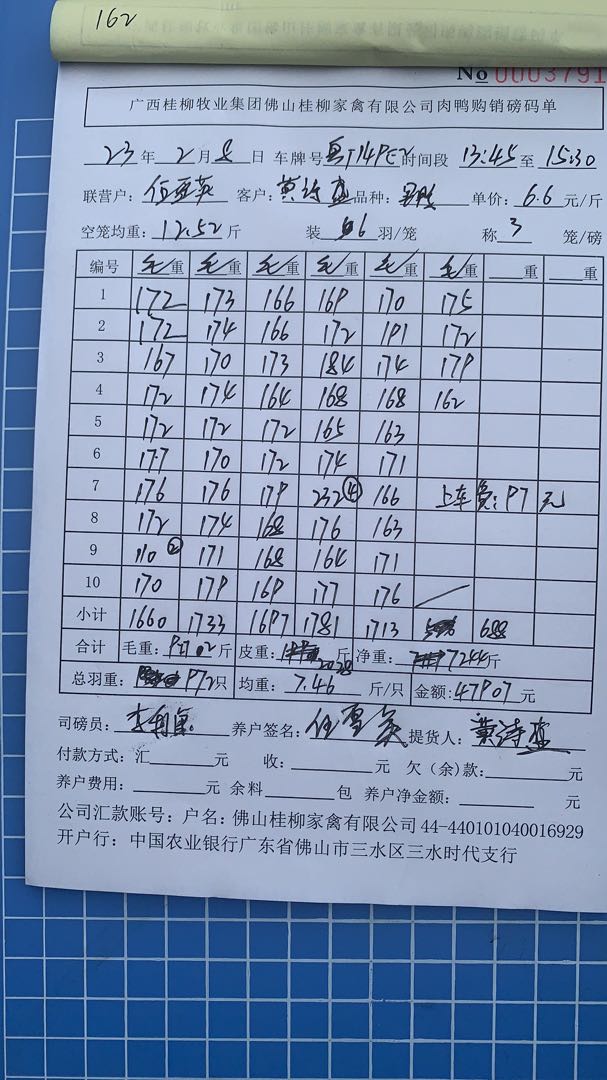 162
No 0003791
广西桂柳牧业集团佛山桂柳家禽有限公司肉鸭购销磅码单
23年2月8日 车牌号 粤T14PE2 时间段 13:45至15:30
联营户: 客户:黄诗 品种: 单价:6.6元/斤
空笼均重:12.52斤 装 6羽/笼 称3笼/磅
编号 毛重 毛重 毛重 毛重 毛重 毛重 重 重
1 172 173 166 169 170 175
2 172 174 166 172 191 172
3 167 170 173 184 174 179
4 172 174 164 168 168 162
5 172 172 172 165 163
6 177 170 172 174 171
7 176 176 179 232④ 166 上车费:97元
8 172 174 168 176 163
9 110② 171 168 164 171
10 170 179 169 177 176
小计 1660 1733 1697 1781 1713 688
合计 毛重: 斤 皮重:2028斤 净重:7244斤
总羽重:972只 均重:7.46斤/只 金额:47907元
司磅员:李 养户签名:任雪 提货人:黄诗
付款方式:汇 元 收: 元 欠(余)款: 元
养户费用: 元 余料 包 养户净金额: 元
公司汇款账号:户名:佛山桂柳家禽有限公司44-440101040016929
开户行:中国农业银行广东省佛山市三水区三水时代支行